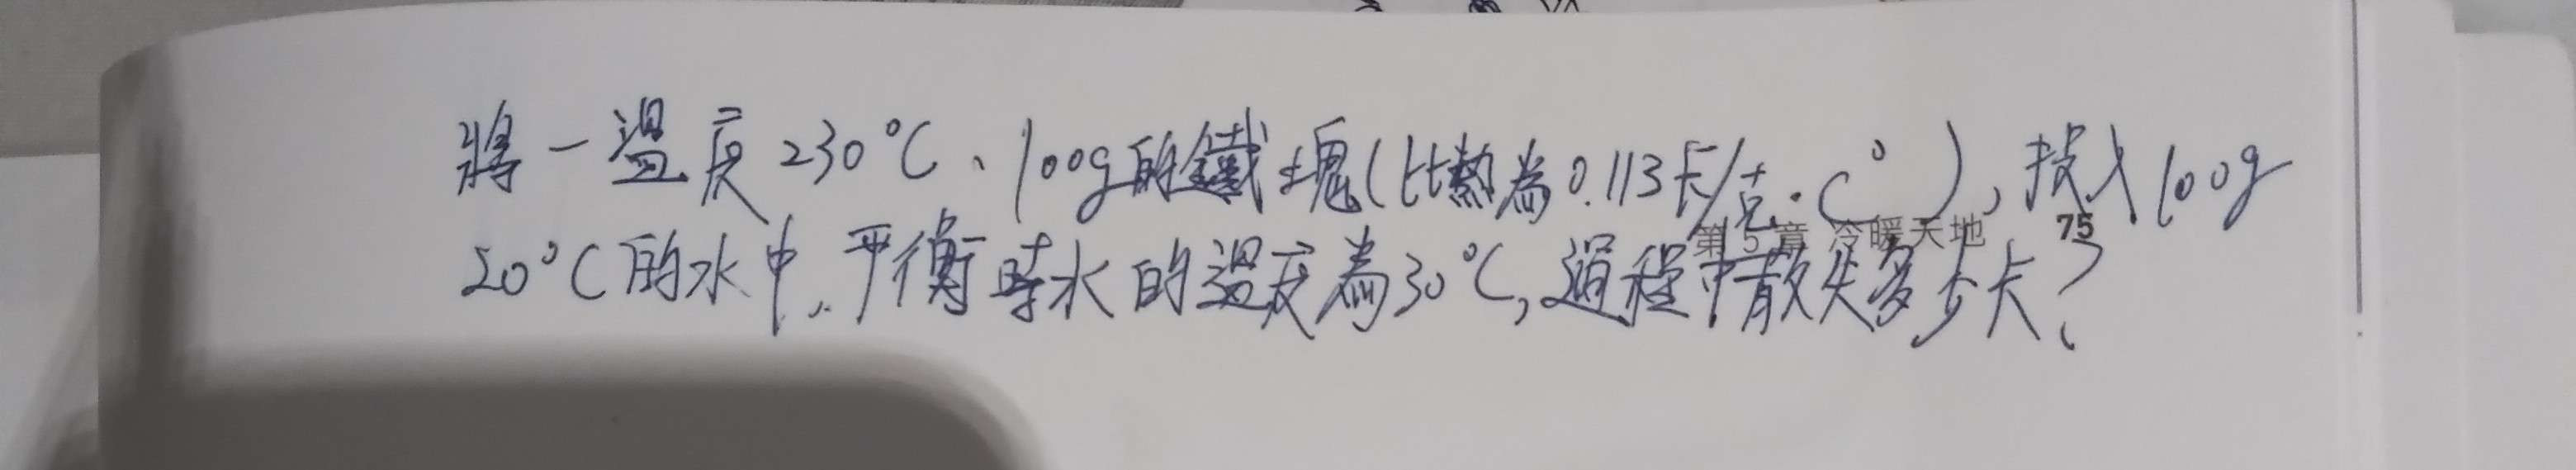 將一溫度230°C、100g的鐵塊(比熱為0.113卡/克·C°),投入100g
第5章 冷暖天地 75
20°C的水中,平衡時水的溫度為30°C,過程中散失多少卡?